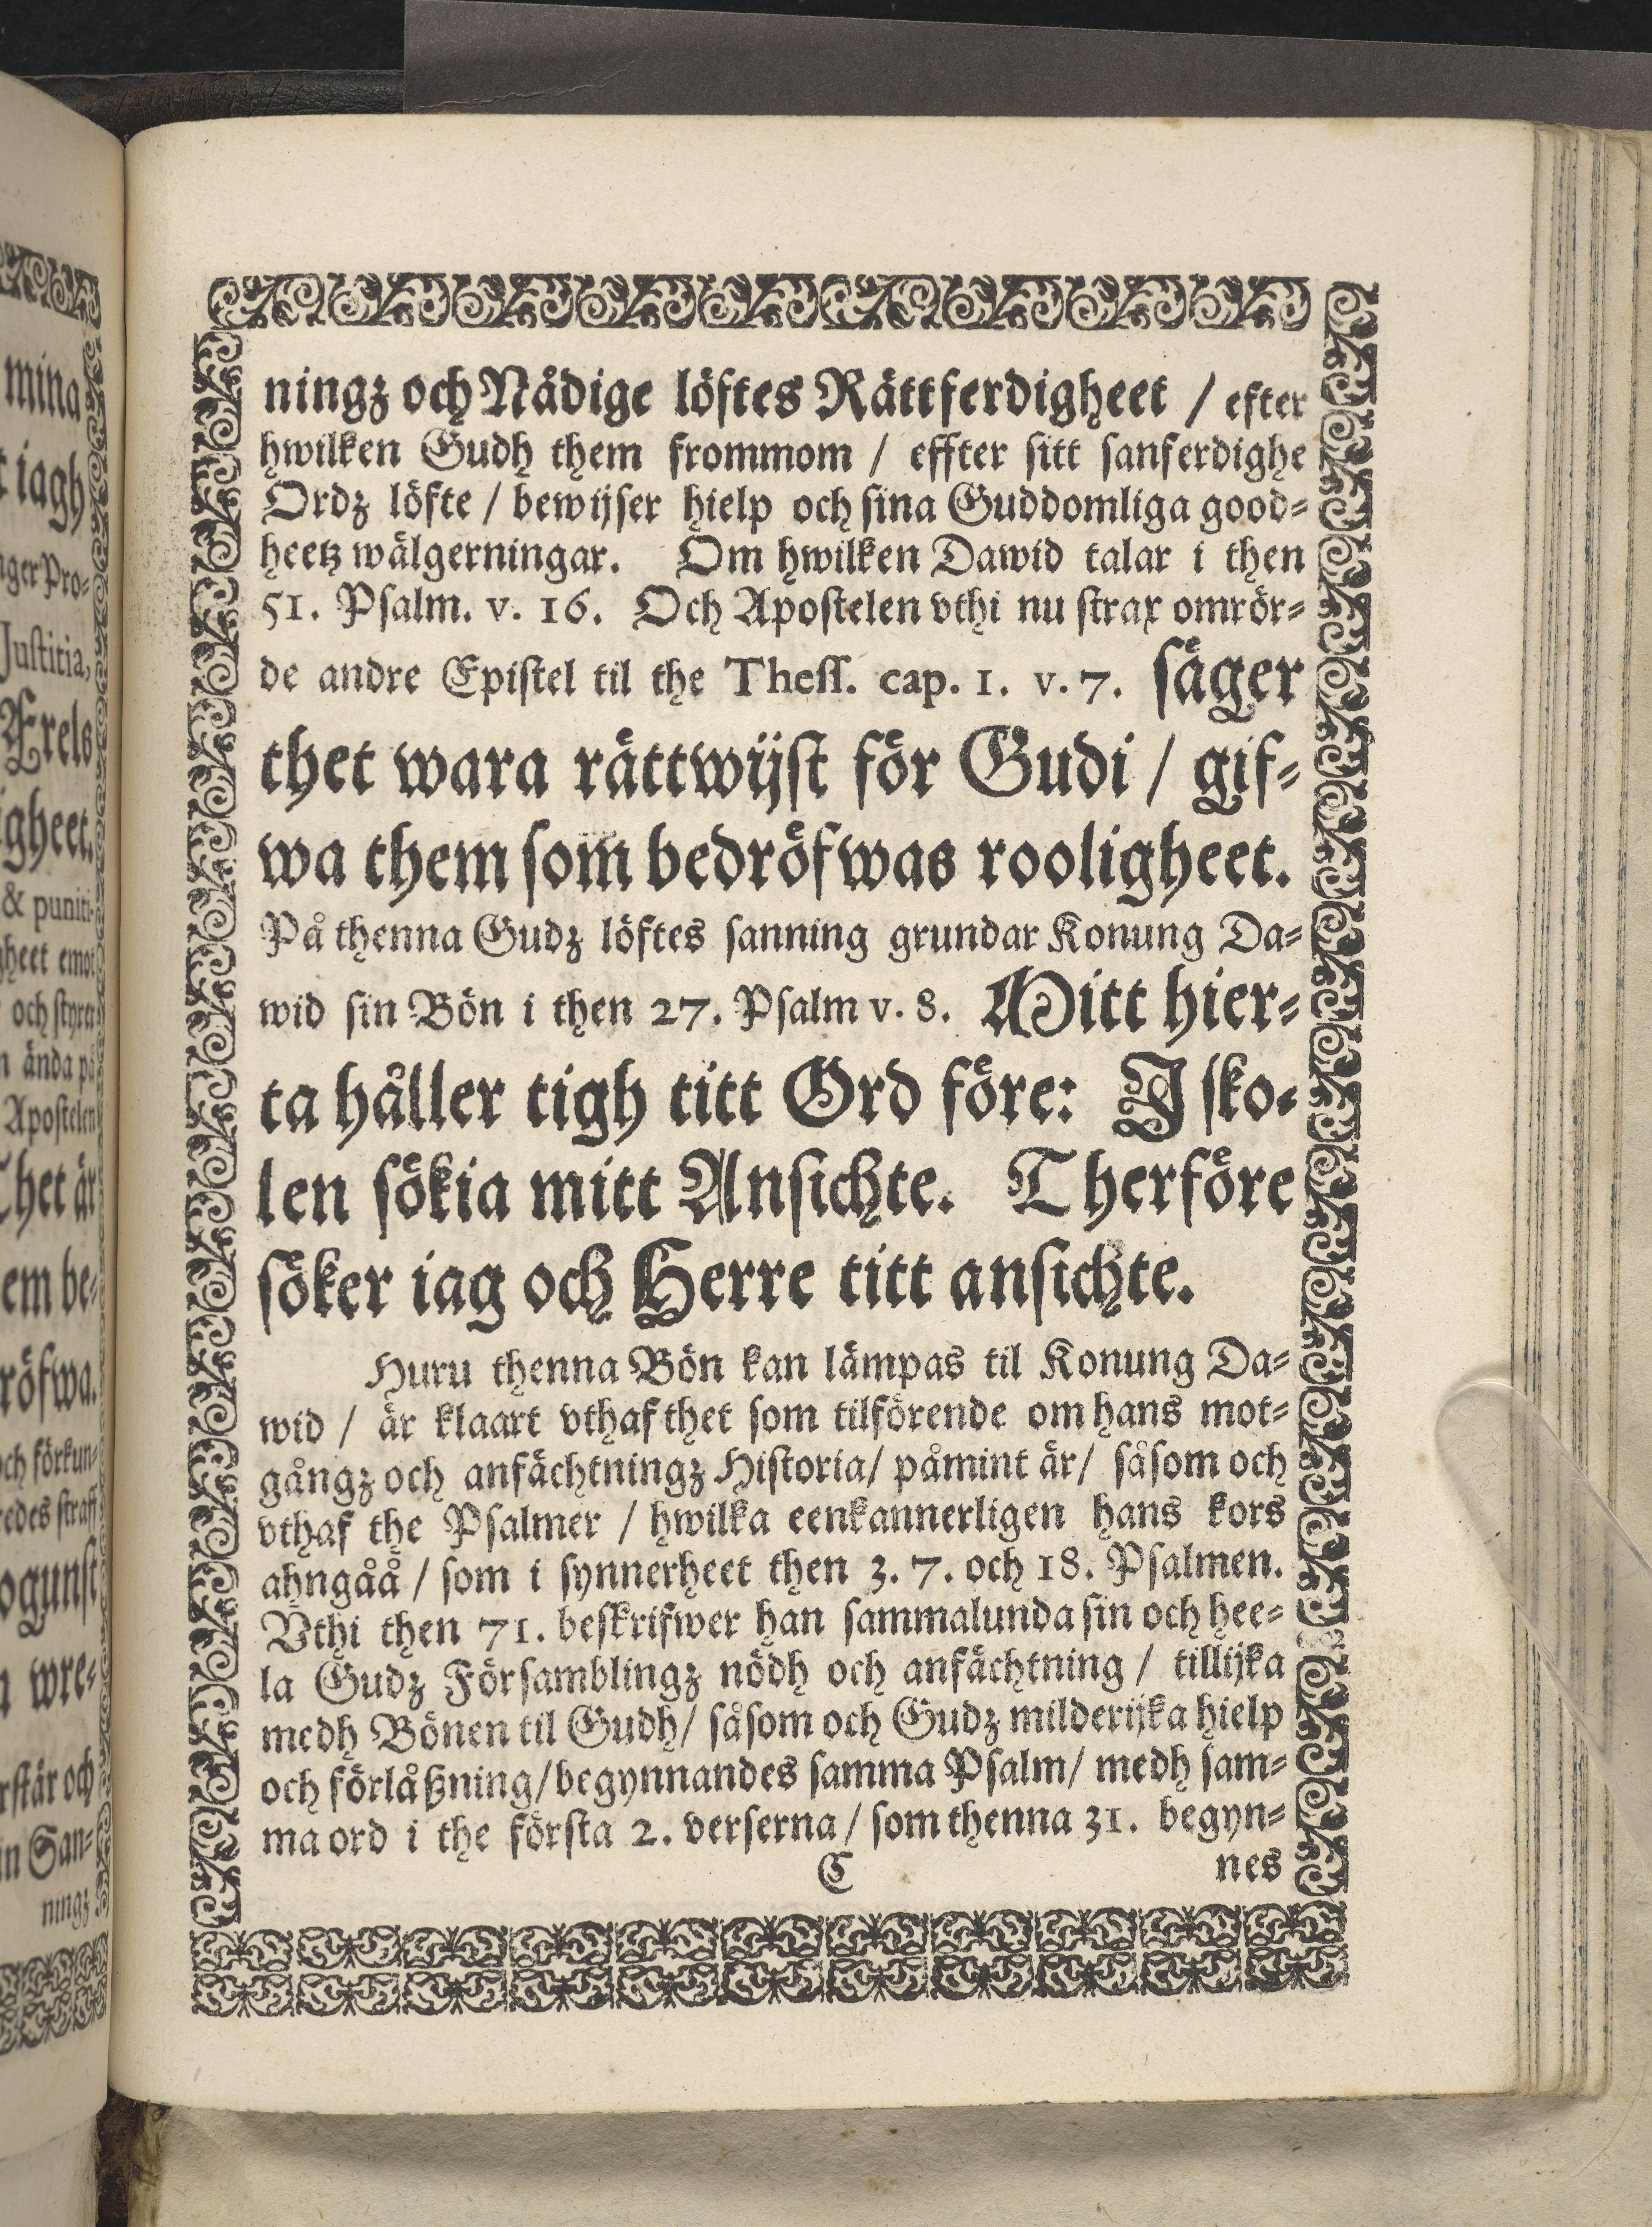 mina
iagh
Pro-
Justitia,
gheet.
& puniti-
gheet emot
och styra
ända på
Apostelen
het är
em be-
röfwa.
och förkun-
straff
ogunst
wre-
och
San-
ningz
ningz och Nådige löftes Rättferdigheet / efter
hwilken Gudh them frommom / effter sitt sanferdighe
Ordz löfte / bewijser hielp och sina Guddomliga good-
heetz wälgerningar. Om hwilken Dawid talar i then
51. Psalm. v. 16. Och Apostelen vthi nu strax omrör-
de andre Epistel til the Thess. cap. 1. v. 7. säger
thet wara rättwijst för Gudi / gif-
wa them som bedröfwas rooligheet.
På thenna Gudz löftes sanning grundar Konung Da-
wid sin Bön i then 27. Psalm v. 8. Mitt hier-
ta håller tigh titt Ord före: I sko-
len sökia mitt Ansichte. Therföre
söker iag och Herre titt ansichte.
Huru thenna Bön kan lämpas til Konung Da-
wid / är klaart vthaf thet som tilförende om hans mot-
gångz och anfächtningz Historia / påmint är / såsom och
vthaf the Psalmer / hwilka eenkannerligen hans kors
ahngåå / som i synnerheet then 3. 7. och 18. Psalmen.
Vthi then 71. beskrifwer han sammalunda sin och hee-
la Gudz Församblingz nödh och anfächtning / tillijka
medh Bönen til Gudh / såsom och Gudz milderijka hielp
och förlåßning / begynnandes samma Psalm / medh sam-
ma ord i the första 2. verserna / som thenna 31. begyn-
C nes